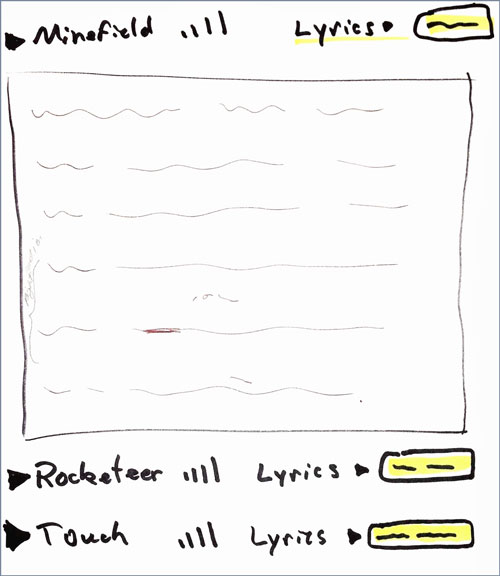 Minefield Lyrics
Rocketeer Lyrics
Touch Lyrics